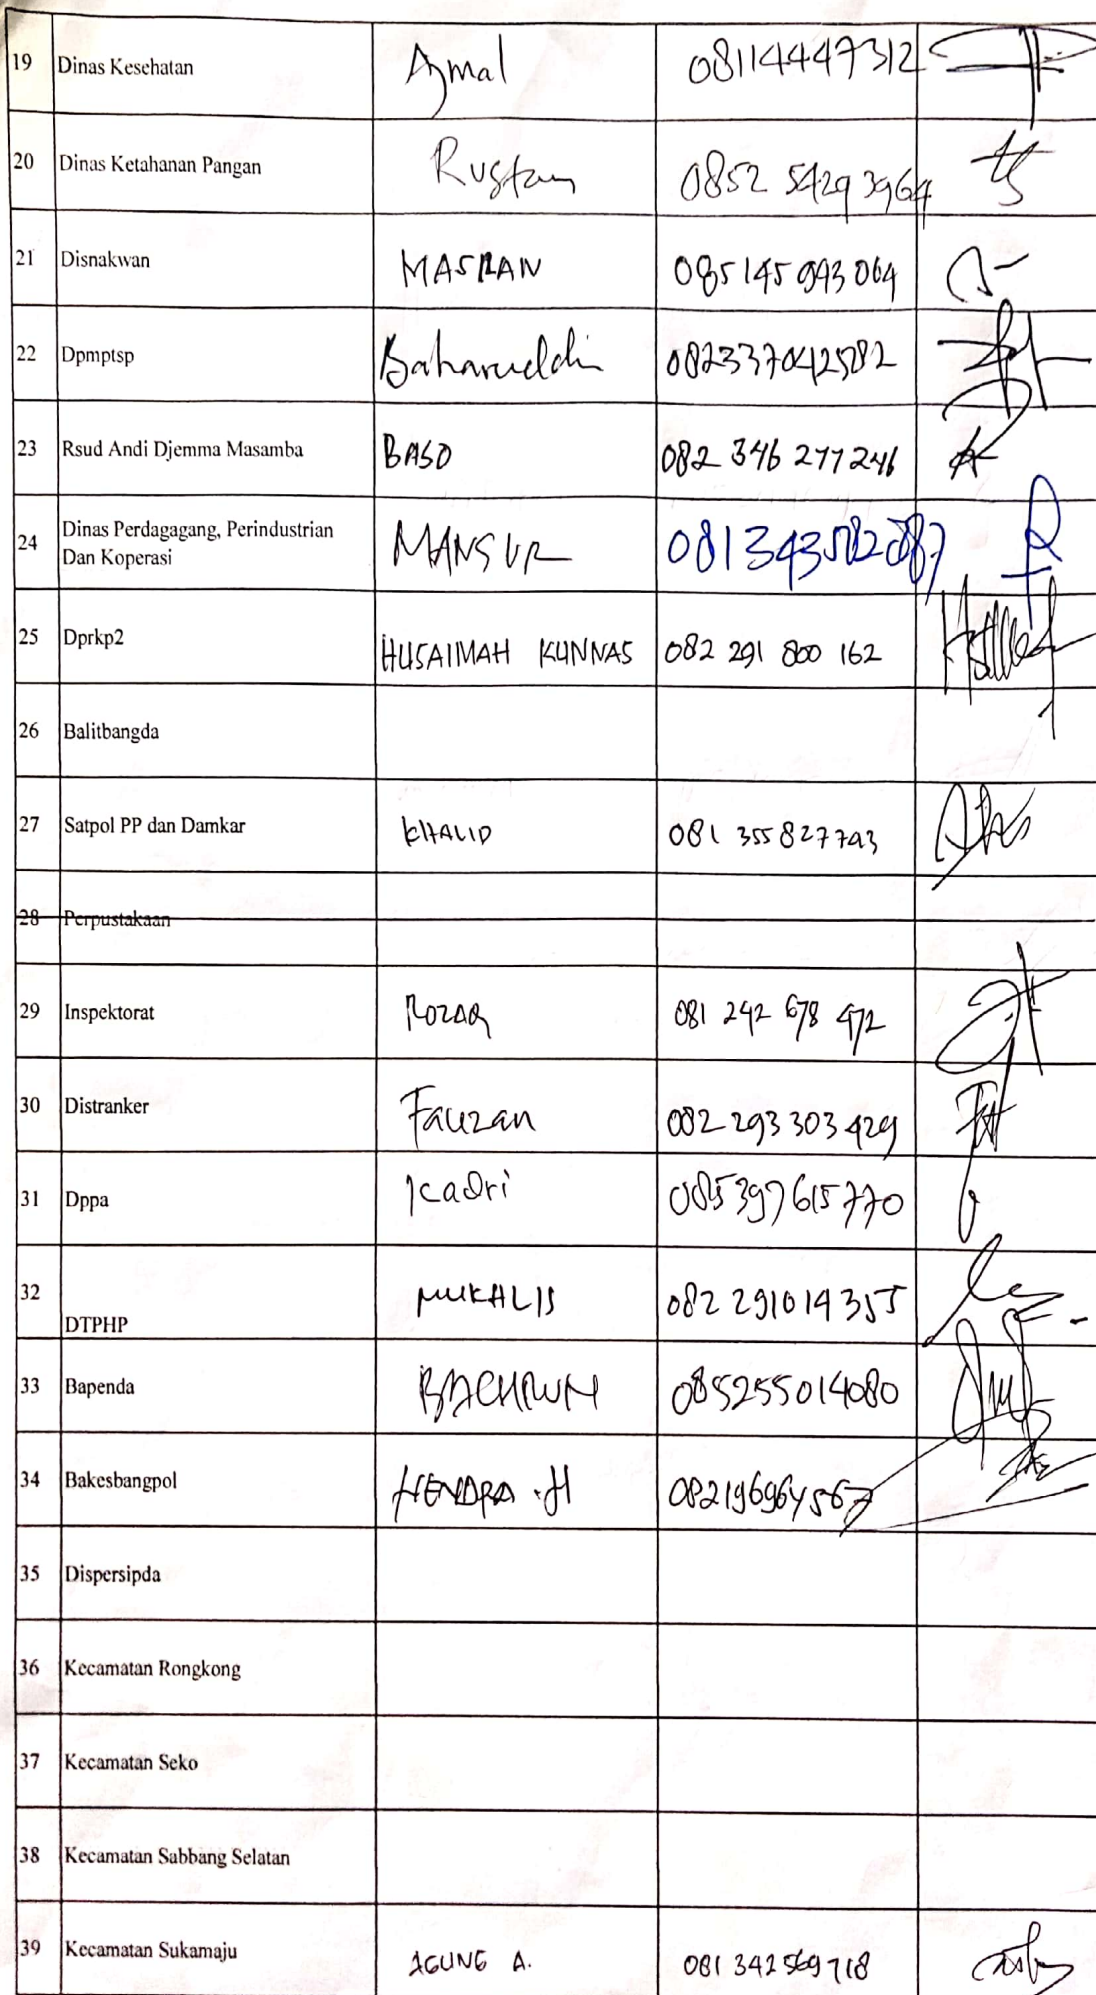 19 Dinas Kesehatan Ajmal 08114447312
20 Dinas Ketahanan Pangan Rustam 0852 5429 3964
21 Disnakwan MASRAN 085 145 943 064
22 Dpmptsp Baharuddin 082337042582
23 Rsud Andi Djemma Masamba BASO 082 346 277 246
24 Dinas Perdagagang, Perindustrian
Dan Koperasi MANSUR 081343582887
25 Dprkp2 HUSAIMAH KUNNAS 082 291 800 162
26 Balitbangda
27 Satpol PP dan Damkar KHALID 081 355 827 793
28 Perpustakaan
29 Inspektorat ROZAQ 081 242 678 472
30 Distranker Fauzan 082 293 303 429
31 Dppa Kadri 085397615770
32
DTPHP MUKHLIS 082 291014355
33 Bapenda 085255014080
34 Bakesbangpol HENDRA .H 082196964567
35 Dispersipda
36 Kecamatan Rongkong
37 Kecamatan Seko
38 Kecamatan Sabbang Selatan
39 Kecamatan Sukamaju AGUNG A. 081 342 569 718